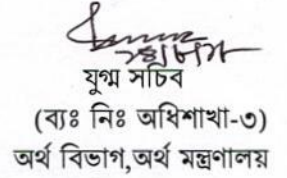 যুগ্ম সচিব
(ব্যঃ নিঃ অধিশাখা-৩)
অর্থ বিভাগ,অর্থ মন্ত্রণালয়